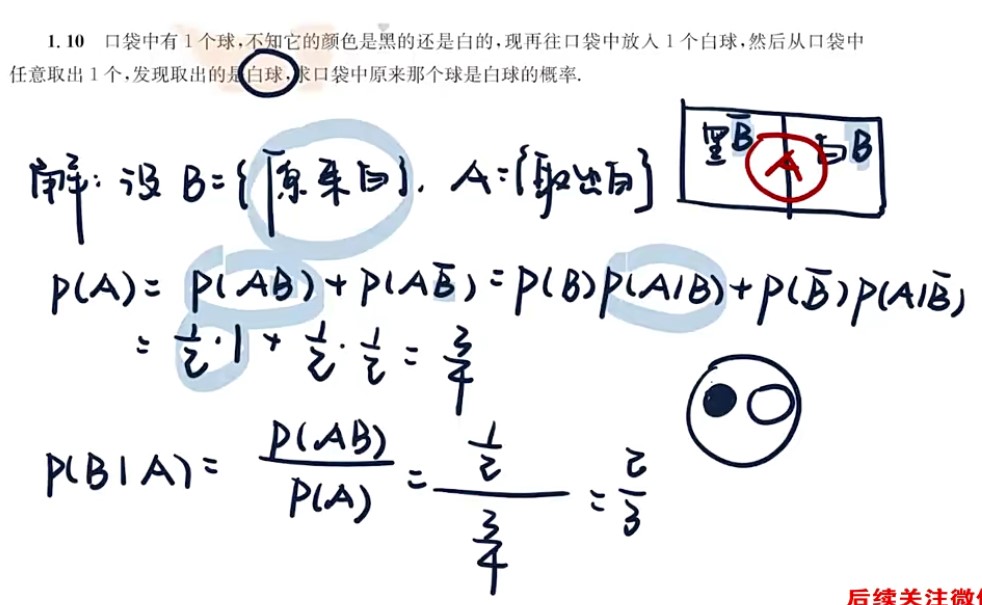 1.10 口袋中有1个球,不知它的颜色是黑的还是白的,现再往口袋中放入1个白球,然后从口袋中
任意取出1个,发现取出的是白球,求口袋中原来那个球是白球的概率.
黑B̅ A 白B
解: 设 B={原来白}. A={取出白}
P(A)= P(AB)+P(AB̅)=P(B)P(A|B)+P(B̅)P(A|B̅)
= 1/2·1 + 1/2·1/2 = 3/4
P(B|A)= P(AB)/P(A) = (1/2)/(3/4) = 2/3
后续关注微